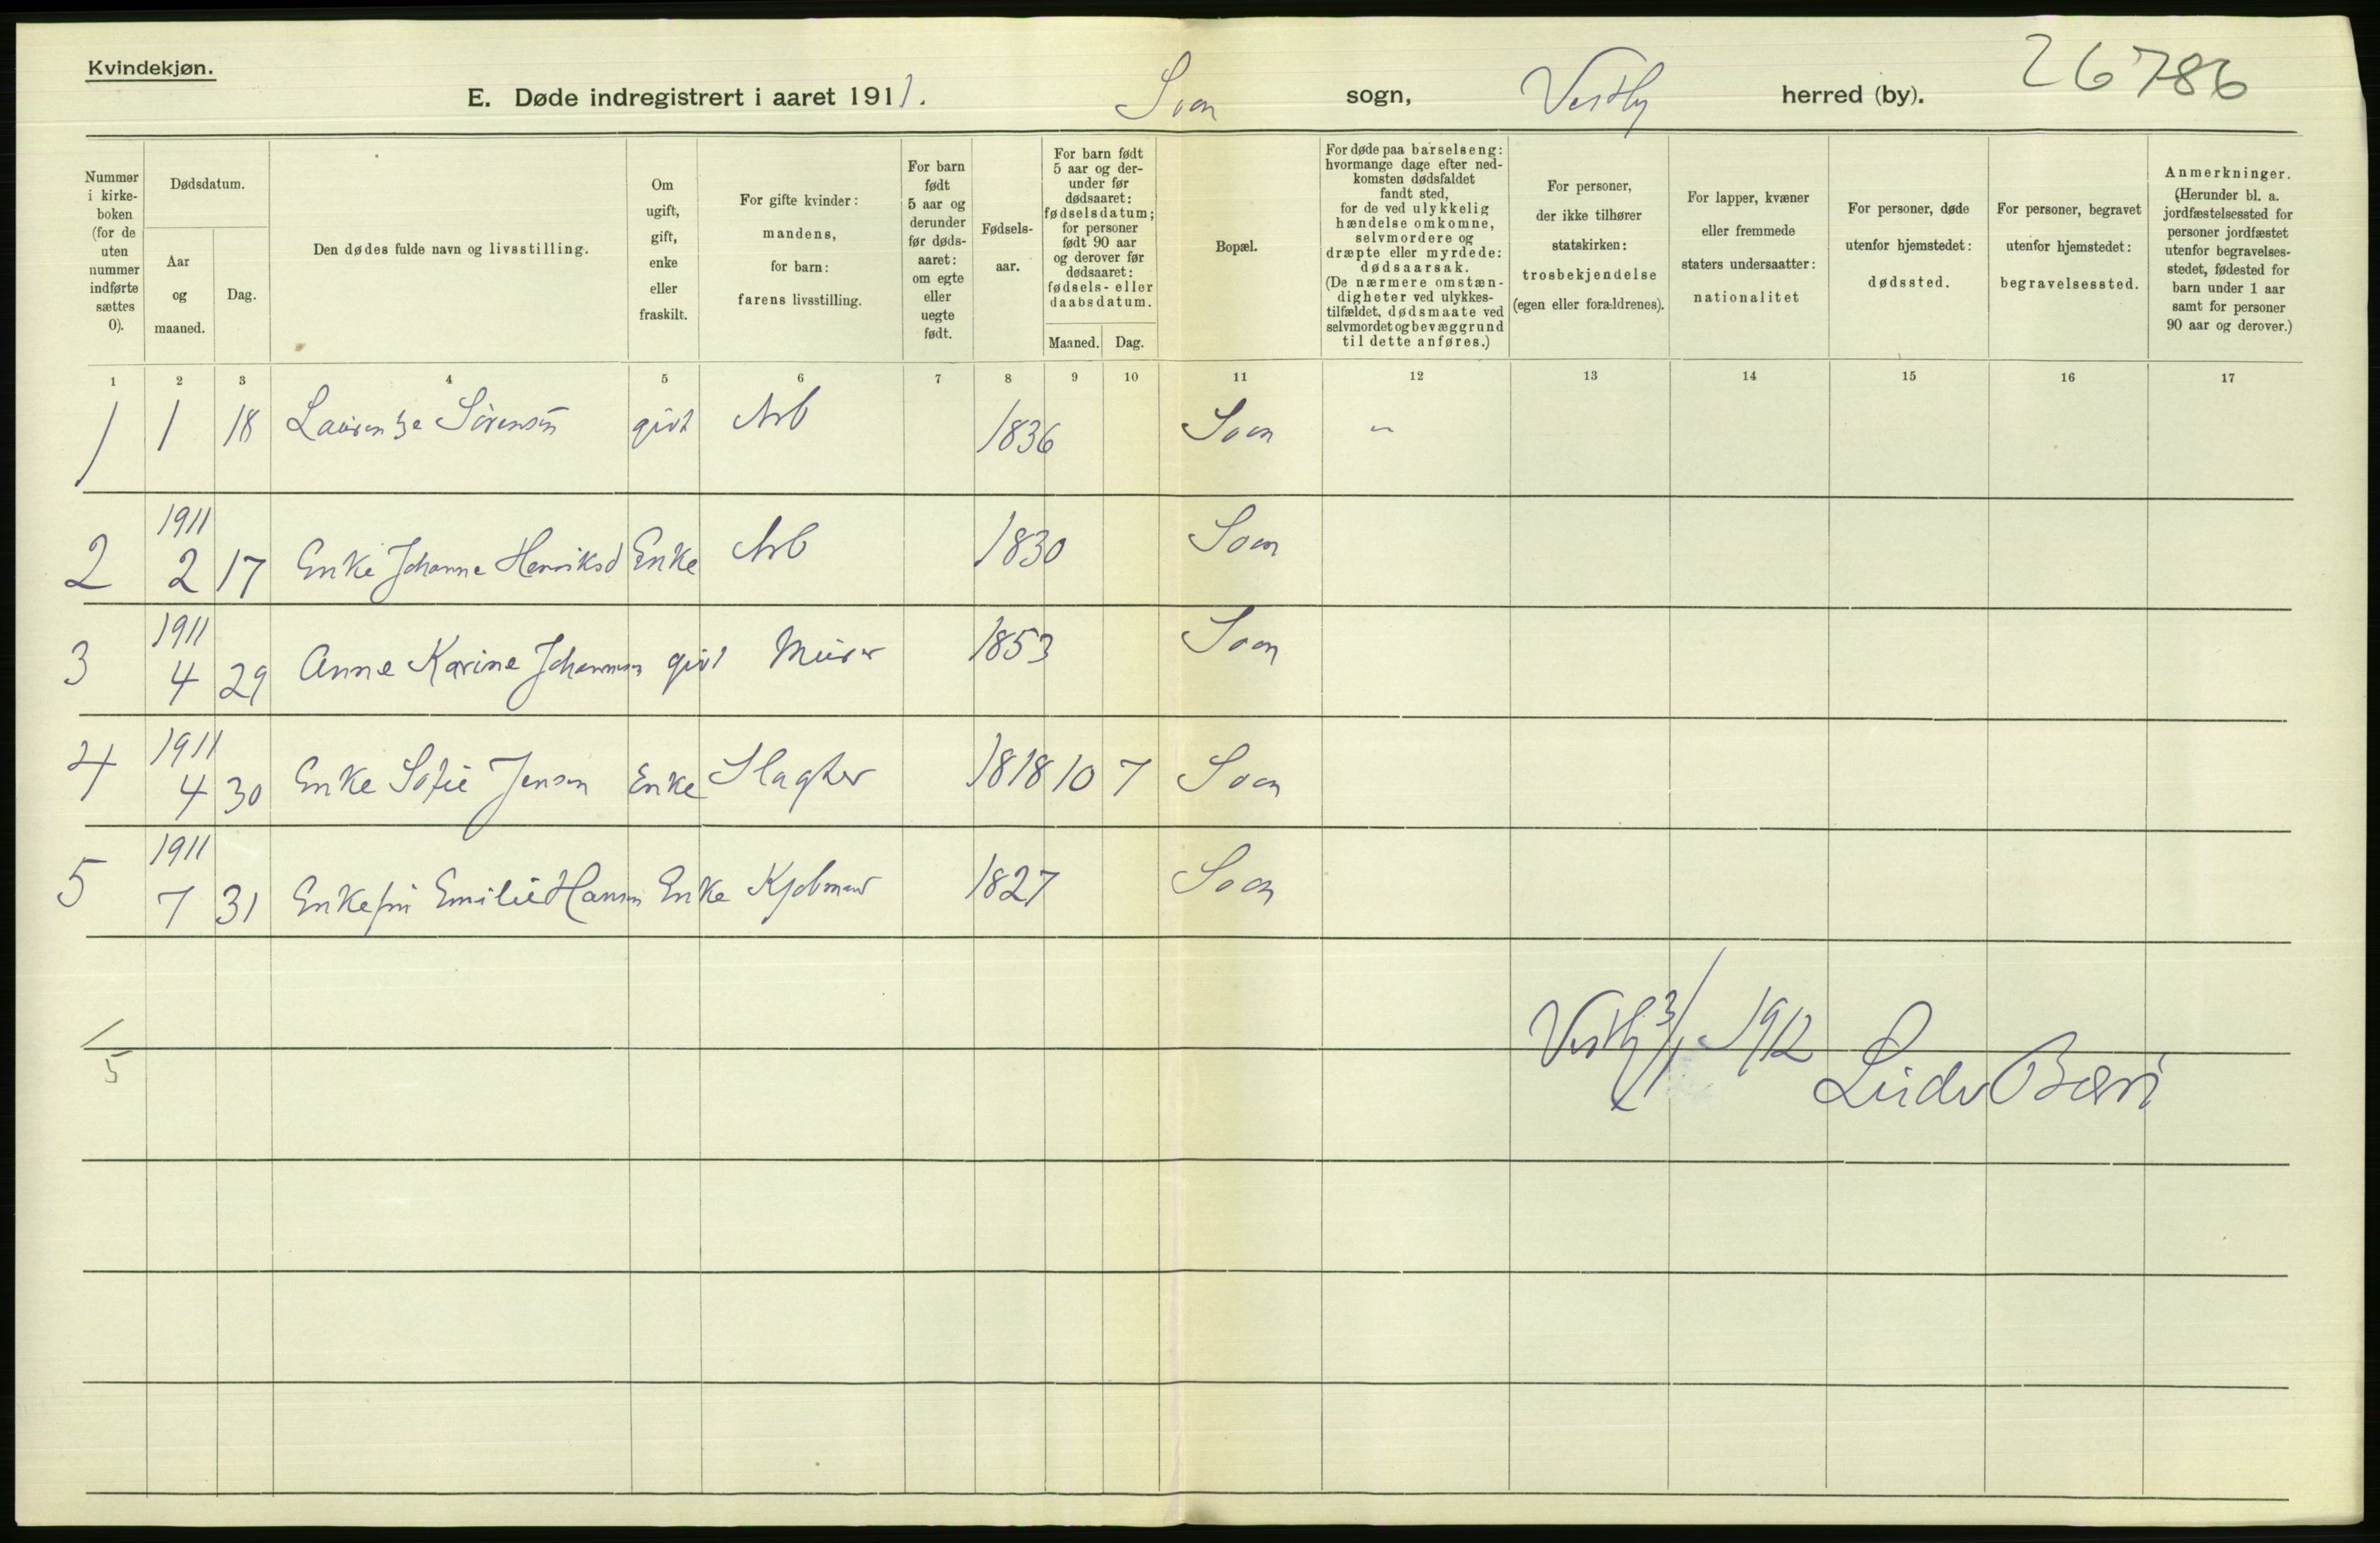 Kvindekjøn.
E. Døde indregistrert i aaret 1911. Soon sogn, Vestby herred (by). 26786
Nummer i kirkeboken (for de uten nummer indførte sættes 0).
Dødsdatum.
Aar og maaned.
Dag.
Den dødes fulde navn og livsstilling.
Om ugift, gift, enke eller fraskilt.
For gifte kvinder: mandens, for barn: farens livsstilling.
For barn født 5 aar og derunder før dødsaaret: om egte eller uegte født.
Fødselsaar.
For barn født 5 aar og derunder før dødsaaret: fødselsdatum; for personer født 90 aar og derover før dødsaaret: fødsels- eller daabsdatum.
Maaned. Dag.
Bopæl.
For døde paa barselseng: hvormange dage efter nedkomsten dødsfaldet fandt sted, for de ved ulykkelig hændelse omkomne, selvmordere og dræpte eller myrdede: dødsaarsak. (De nærmere omstændigheter ved ulykkestilfældet, dødsmaate ved selvmordet og bevæggrund til dette anføres.)
For personer, der ikke tilhører statskirken: trosbekjendelse (egen eller forældrenes).
For lapper, kvæner eller fremmede staters undersaatter: nationalitet
For personer, døde utenfor hjemstedet: dødssted.
For personer, begravet utenfor hjemstedet: begravelsessted.
Anmerkninger. (Herunder bl. a. jordfæstelsessted for personer jordfæstet utenfor begravelsesstedet, fødested for barn under 1 aar samt for personer 90 aar og derover.)
1 2 3 4 5 6 7 8 9 10 11 12 13 14 15 16 17
1 1 18 Laurentze Sørensen givt Arb 1836 Soon "
2 1911 2 17 Enke Johanne Henriksd Enke Arb 1830 Soon
3 1911 4 29 Anne Karine Johannesen givt Murer 1853 Soon
4 1911 4 30 Enke Sofie Jensen Enke Slagter 1818 10 7 Soon
5 1911 7 31 Enkefru Emilie Hansen Enke Kjøbmand 1827 Soon
Vestby 3/1 1912
5